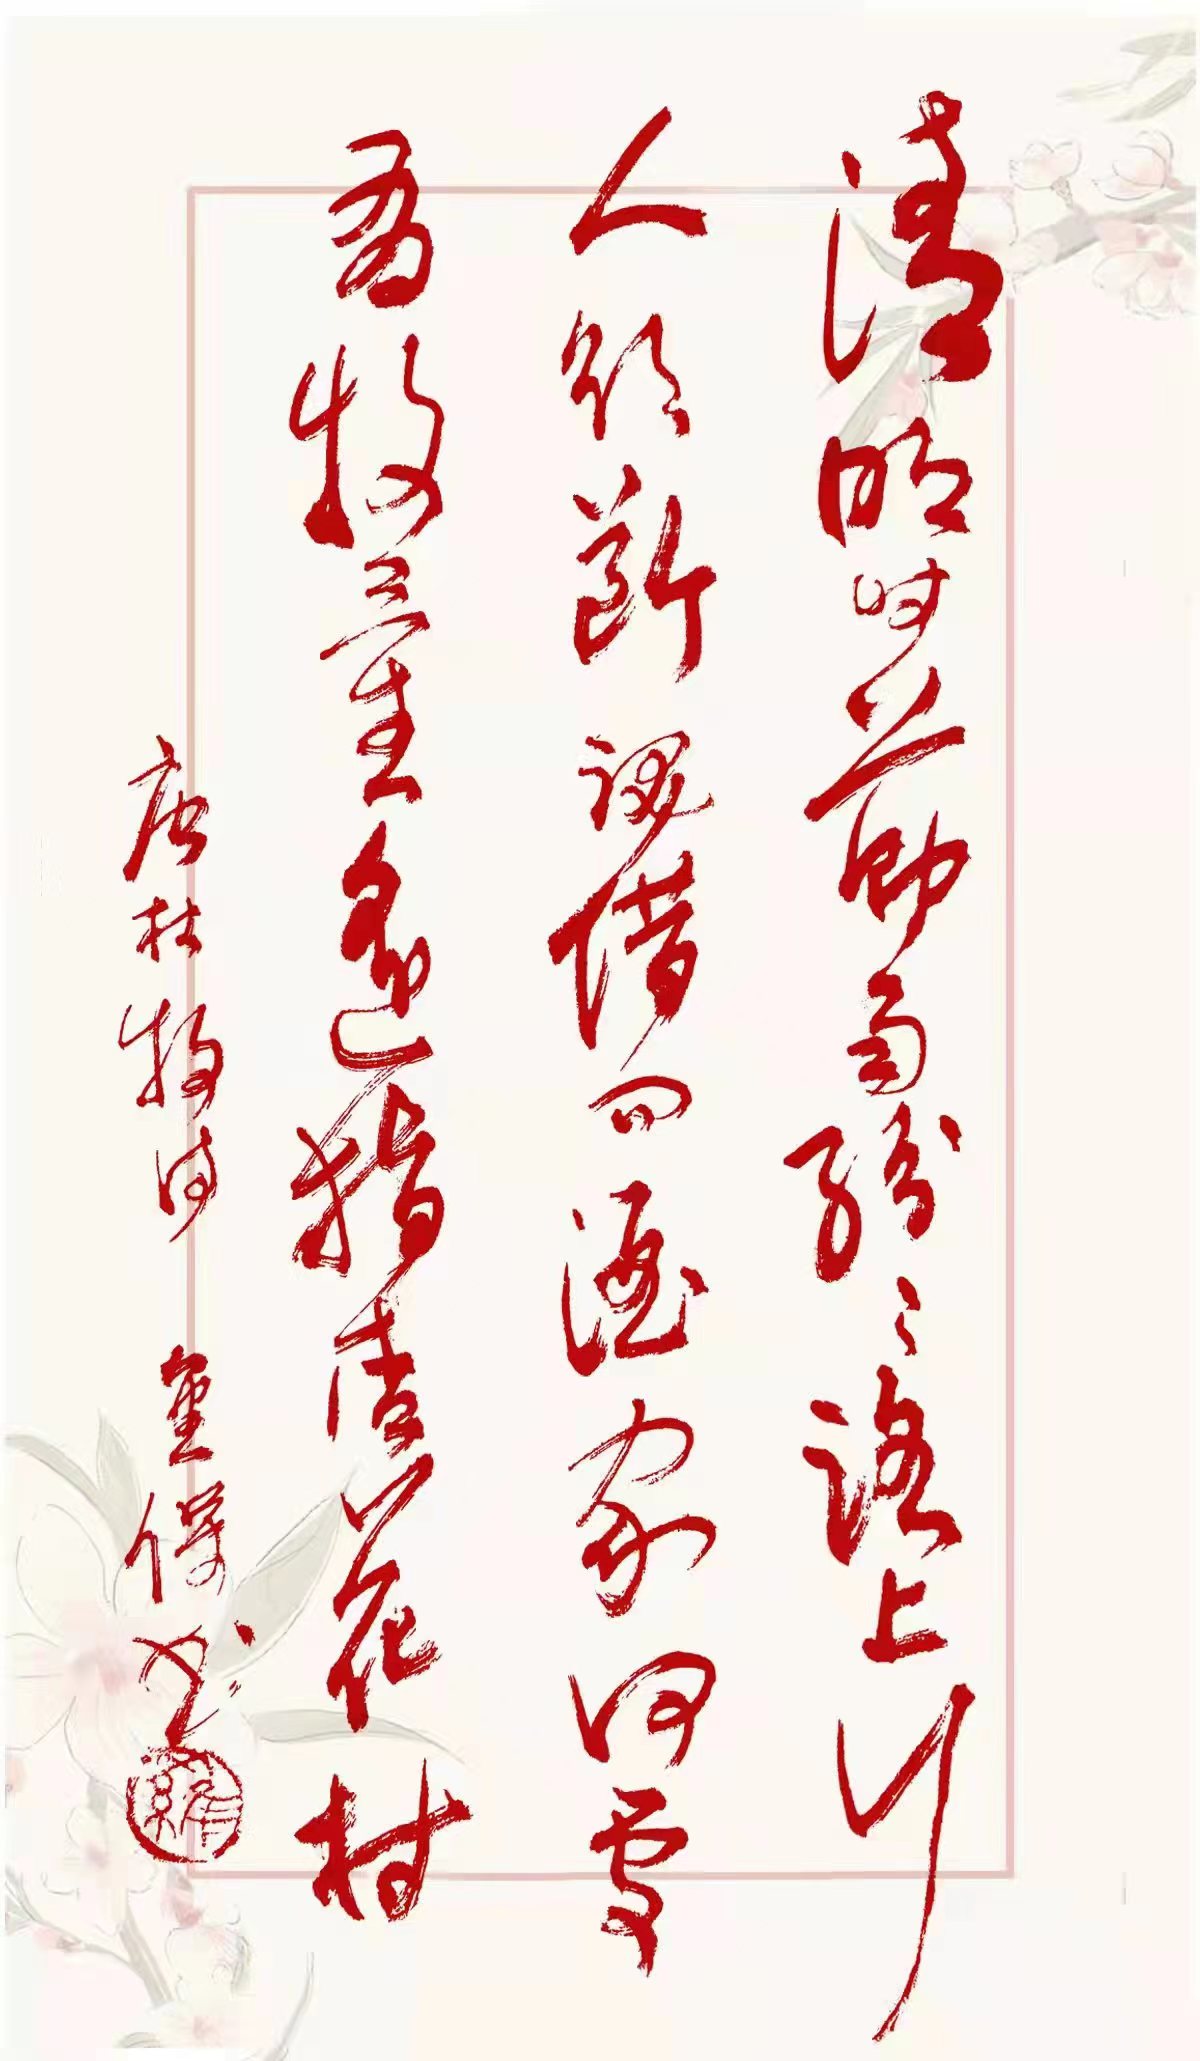 清明时节雨纷々路上行
人欲断魂借问酒家何处
有牧童遥指杏花村
唐杜牧诗 保书